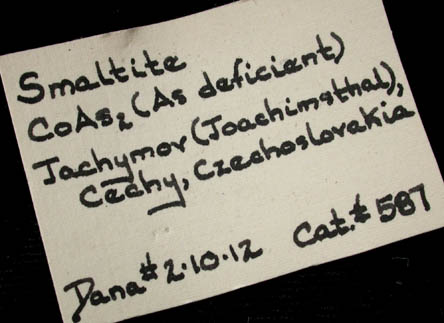 Smaltite
CoAs₂ (As deficient)
Jachymov (Joachimsthal),
Cechy, Czechoslovakia
Dana # 2.10.12 Cat. # 587